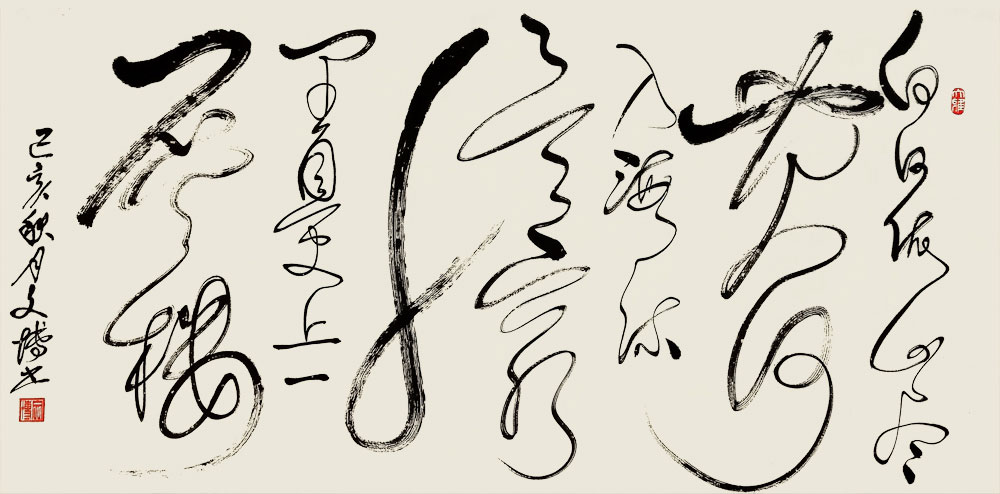 白日依山尽
黄河
入海流
欲穷
千
里目更上一
层楼
己亥秋月文博书